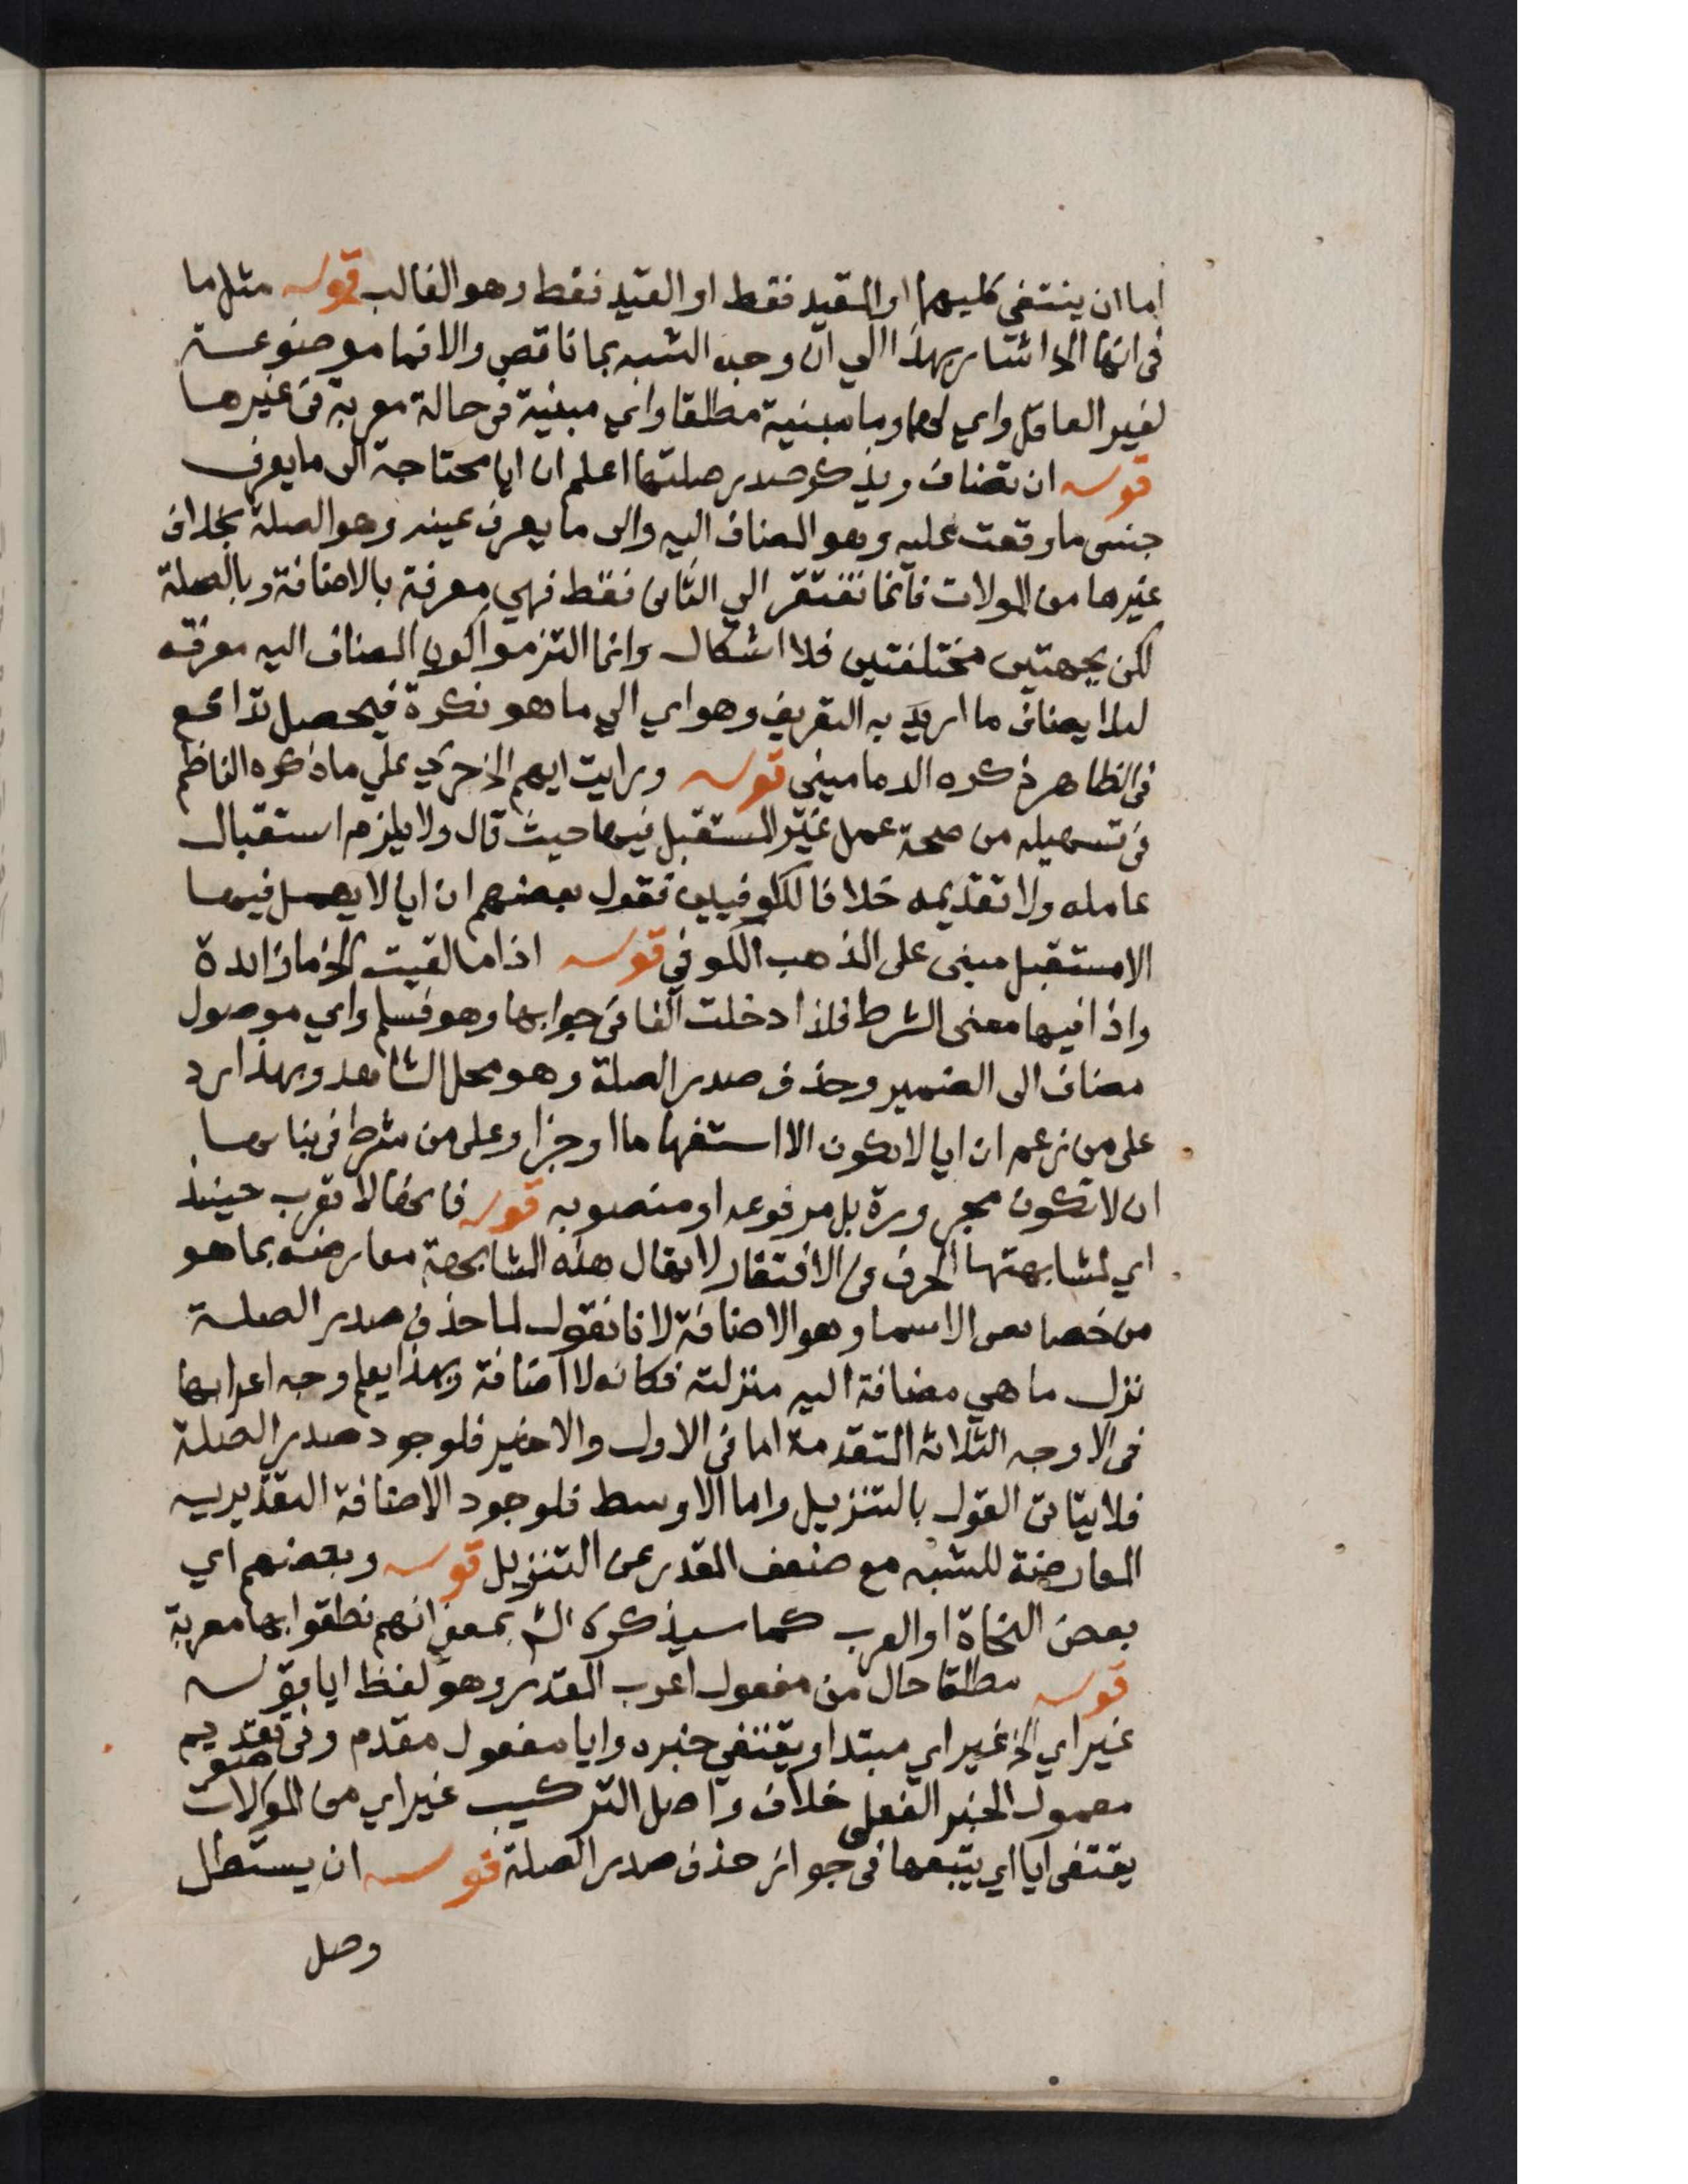 اما ان ينتفي كليهما او المقيد فقط او القيد فقط وهو الغالب قوله مثل ما
في انها الخ اشار بهذا الي ان وجه الشبه بما ناقص والا فما موضوعة
لغير العاقل واي لهما وما مبنية مطلقا واي مبنية في حالة معربة في غيرها
قوله ان تضاف ويذكر صدر صلتها اعلم ان ايا محتاجة الى ما يعرف
جنس ما وقعت عليه وهو المضاف اليه والى ما يعرف عينه وهو الصلة بخلاف
غيرها من الموصولات فانما تفتقر الي الثانى فقط فهي معرفة بالاضافة وبالصلة
لكن بجهتين مختلفتين فلا اشكال وانما التزموا كون المضاف اليه معرفة
لئلا يضاف ما اريد به التعريف وهو اي الي ما هو نكرة فيحصل تدافع
في الظاهر ذكره الدماميني قوله ورايت ايهم الخ جري علي ما ذكره الناظم
في تسهيله من صحة عمل غير المستقبل فيها حيث قال ولا يلزم استقبال
عامله ولا تقديمه خلافا للكوفيين فقول بعضهم ان ايا لا يعمل فيها
الا مستقبل مبنى على المذهب الكوفي قوله اذا ما لقيت الخ ما زائدة
واذا فيها معنى الشرط فلذا دخلت الفا في جوابها وهو فسلم واي موصول
مضاف الى الضمير وحذف صدر الصلة وهو محل الشاهد وبهذا رد
على من زعم ان ايا لا تكون الا استفهاما او جزا وعلى من شرط في بنائها
ان لا تكون مجرورة بل مرفوعه او منصوبه قوله فانها لا تعرب حينئذ
اي لمشابهتها الحرف في الافتقار لا يقال هذه المشابهة معارضه بما هو
من خصائص الاسما وهو الاضافة لانا نقول لما حذف صدر الصلة
نزل ما هي مضافة اليه منزلته فكانه لا اضافة وبهذا يعلم وجه اعرابها
في الاوجه الثلاثة المتقدمة اما في الاول والاخير فلوجود صدر الصلة
فلا يتاتى القول بالتنزيل واما الاوسط فلوجود الاضافة التقديريه
المعارضة للشبه مع ضعف المقدر عن التنزيل قوله وبعضهم اي
بعض النحاة او العرب كما سيذكره الش بمعنى انهم نطقوا بها معربة
قوله مطلقا حال من مفعول اعرب المقدر وهو لفظ ايا قوله
غير اي الخ غير اي مبتدا ويقتفي خبره وايا مفعول مقدم وفي تقديم
معمول الخبر الفعلي خلاف واصل التركيب غير اي من الموصولات
يقتفى ايا اي يتبعها في جواز حذف صدر الصلة قوله ان يستطل
وصل